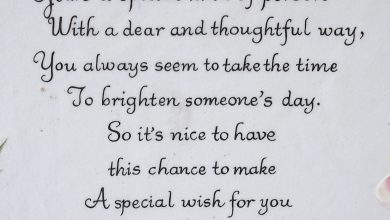 With a dear and thoughtful way,
You always seem to take the time
To brighten someone's day.
So it's nice to have
this chance to make
A special wish for you